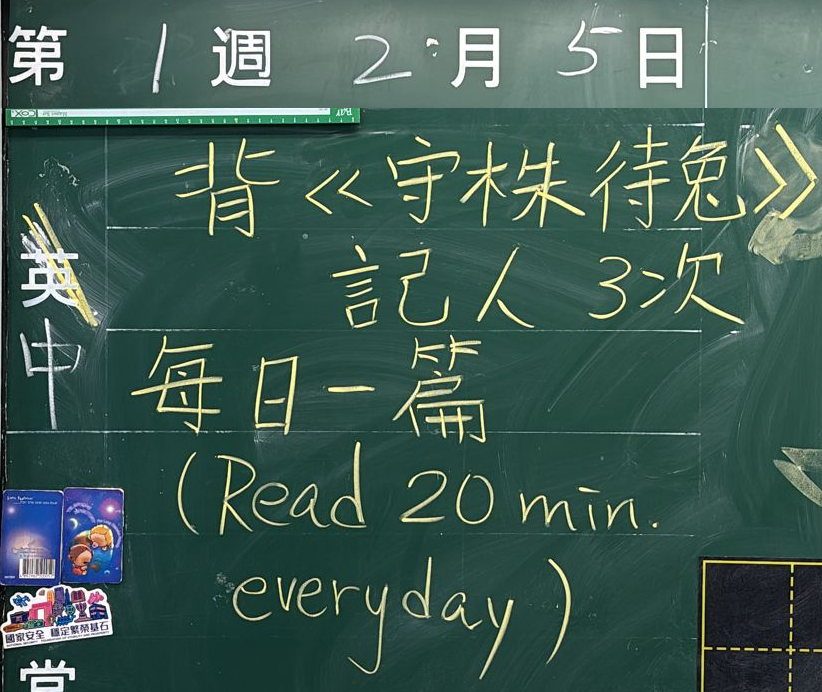 第 1 週 2 月 5 日
背《守株待兔》
記人 3次
英
中
每日一篇
(Read 20 min.
everyday)
國家安全 穩定繁榮基石
堂